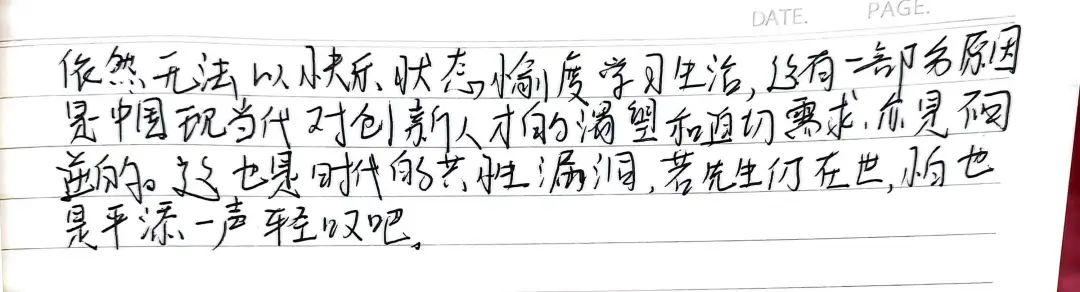 DATE. PAGE.
依然无法以快乐状态愉度学习生活,这有一部分原因
是中国现当代对创新人才的渴望和迫切需求,亦是不可
逆的。这也是时代的共性漏洞,若先生仍在世,怕也
是平添一声轻叹吧。